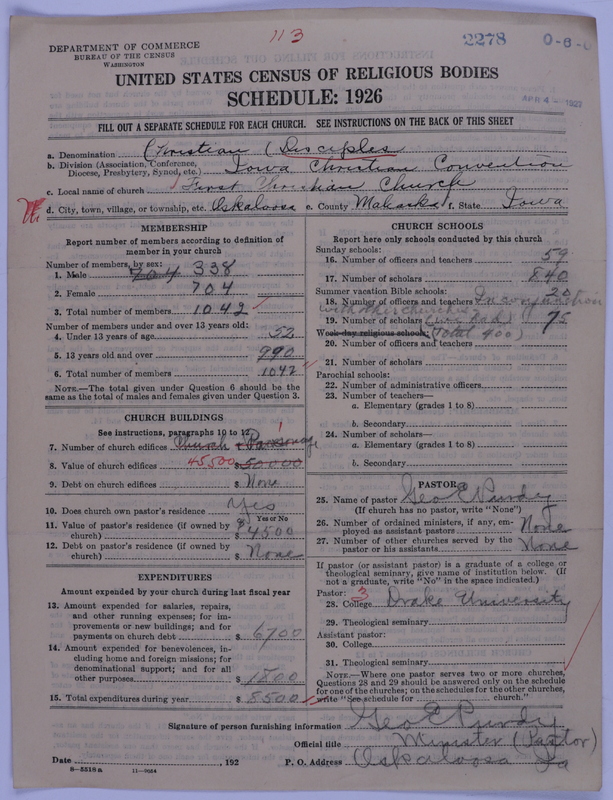 113
2278
0-6-0
DEPARTMENT OF COMMERCE
BUREAU OF THE CENSUS
WASHINGTON
APR 4 - 1927
UNITED STATES CENSUS OF RELIGIOUS BODIES
SCHEDULE: 1926
FILL OUT A SEPARATE SCHEDULE FOR EACH CHURCH. SEE INSTRUCTIONS ON THE BACK OF THIS SHEET
a. Denomination Christian (Disciples
b. Division (Association, Conference, Diocese, Presbytery, Synod, etc.) Iowa Christian Convention
c. Local name of church First Christian Church
d. City, town, village, or township, etc. Oskaloosa e. County Mahaska f. State Iowa
MEMBERSHIP
Report number of members according to definition of
member in your church
Number of members, by sex:
1. Male 704 338
2. Female 704
3. Total number of members 1042
Number of members under and over 13 years old:
4. Under 13 years of age 52
5. 13 years old and over 990
6. Total number of members 1042
NOTE.—The total given under Question 6 should be
the same as the total of males and females given under Question 3.
CHURCH BUILDINGS
See instructions, paragraphs 10 to 12
7. Number of church edifices Church + Parsonage 1
8. Value of church edifices 45500 $ 50000
9. Debt on church edifices $ None
10. Does church own pastor's residence Yes
Yes or No
11. Value of pastor's residence (if owned by
church) $ 4500
12. Debt on pastor's residence (if owned by
church) $ None
EXPENDITURES
Amount expended by your church during last fiscal year
13. Amount expended for salaries, repairs,
and other running expenses; for im-
provements or new buildings; and for
payments on church debt $ 6700
14. Amount expended for benevolences, in-
cluding home and foreign missions; for
denominational support; and for all
other purposes $ 1800
15. Total expenditures during year $ 8500
CHURCH SCHOOLS
Report here only schools conducted by this church
Sunday schools:
16. Number of officers and teachers 59
17. Number of scholars 840
Summer vacation Bible schools: 20
18. Number of officers and teachers In conjunction
with other churches
19. Number of scholars 75
Week-day religious schools: (Total 400)
20. Number of officers and teachers
21. Number of scholars
Parochial schools:
22. Number of administrative officers
23. Number of teachers—
a. Elementary (grades 1 to 8)
b. Secondary
24. Number of scholars—
a. Elementary (grades 1 to 8)
b. Secondary
PASTOR
25. Name of pastor Geo E Purdy
(If church has no pastor, write "None")
26. Number of ordained ministers, if any, em-
ployed as assistant pastors None
27. Number of other churches served by the
pastor or his assistants None
If pastor (or assistant pastor) is a graduate of a college or
theological seminary, give name of institution below. (If
not a graduate, write "No" in the space indicated.)
Pastor: 3
28. College Drake University
29. Theological seminary
Assistant pastor:
30. College
31. Theological seminary
NOTE.—Where one pastor serves two or more churches,
Questions 28 and 29 should be answered only on the schedule
for one of the churches; on the schedules for the other churches,
write "See schedule for church."
Signature of person furnishing information Geo E Purdy
Official title Minister (Pastor)
Date , 192 P. O. Address Oskaloosa Ia
8-5518a 11-9024